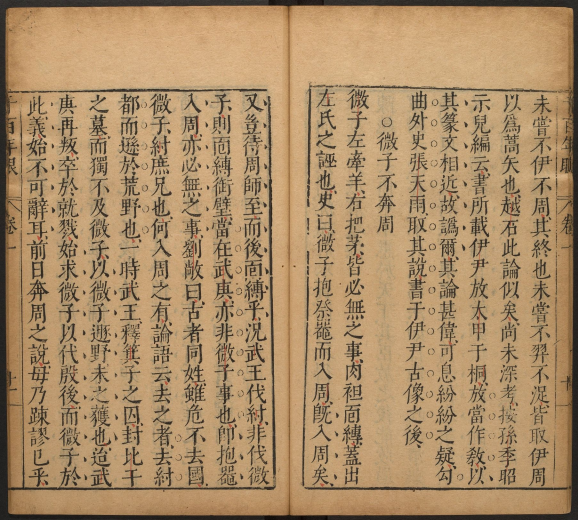 未嘗不伊不周其終也未嘗不羿不浞皆取伊周
以爲嵩矢也越石此論似矣尚未深考按孫季昭
示兒編云書所載伊尹放太甲于桐放當作敎以
其篆文相近故譌爾其論甚偉可息紛紛之疑勾
曲外史張天雨取其說書于伊尹古像之後
○微子不奔周
微子左牽羊右把茅皆必無之事肉袒面縛蓋出
左氏之誣也史曰微子抱祭器而入周旣入周矣
又豈待周師至而後面縛乎況武王代紂非伐微
子則面縛銜璧當在武庚亦非微子事也卽抱器
入周亦必無之事劉敞曰古者同姓雖危不去國
微子紂庶兄也何入周之有論語云去之者去紂
都而遜於荒野也一時武王釋箕子之囚封比干
之墓而獨不及微子以微子遯野未之獲也迨武
庚再叛卒於就戮始求微子以代殷後而微子於
此義始不可辭耳前日奔周之說毋乃踈謬已乎
千百年眼
卷一